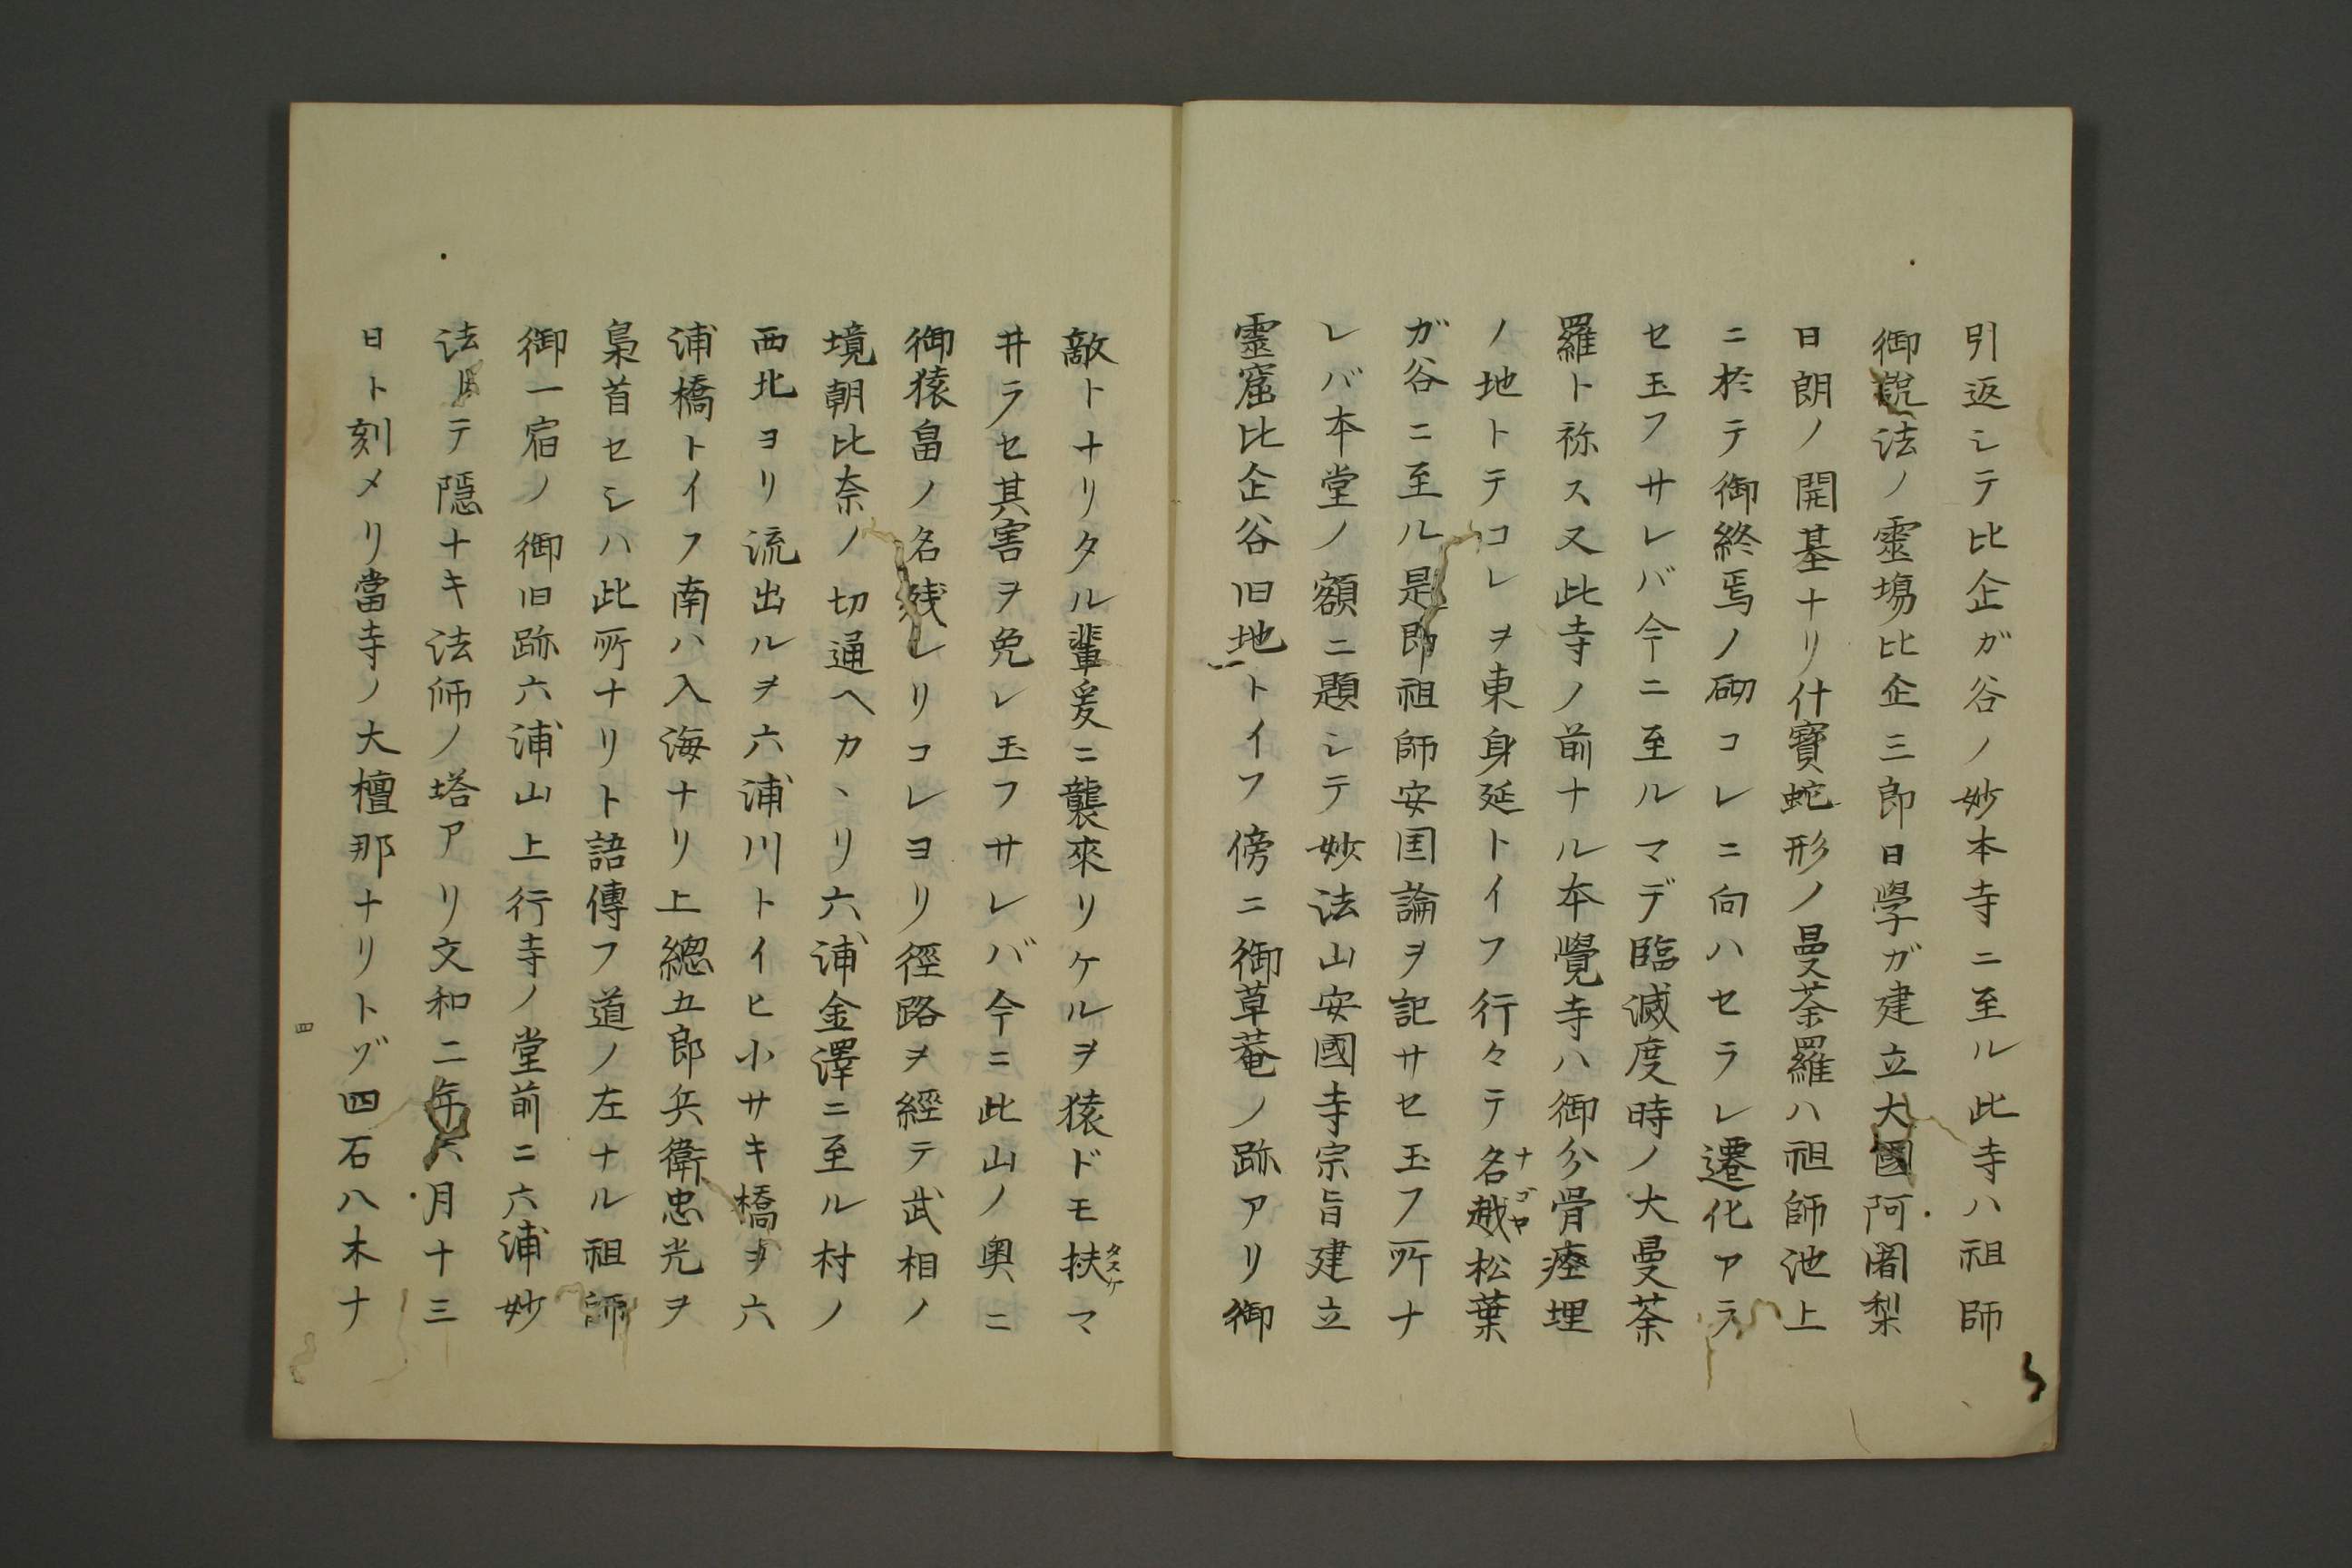 引返シテ比企ガ谷ノ妙本寺ニ至ル此寺ハ祖師
御説法ノ靈場比企三郎日學ガ建立大國阿闍梨
日朗ノ開基ナリ什寶蛇形ノ曼荼羅ハ祖師池上
ニ於テ御終焉ノ砌コレニ向ハセラレ遷化アラ
セ玉フサレバ今ニ至ルマデ臨滅度時ノ大曼荼
羅ト祢ス又此寺ノ前ナル本覺寺ハ御分骨瘞埋
ノ地トテコレヲ東身延トイフ行々テ名越松葉
ナゴヤ
ガ谷ニ至ル是即祖師安国論ヲ記サセ玉フ所ナ
レバ本堂ノ額ニ題シテ妙法山安國寺宗旨建立
靈窟比企谷旧地トイフ傍ニ御草菴ノ跡アリ御
敵トナリタル輩爰ニ襲來リケルヲ猿ドモ扶マ
タスケ
井ラセ其害ヲ免レ玉フサレバ今ニ此山ノ奥ニ
御猿畠ノ名残レリコレヨリ徑路ヲ經テ武相ノ
境朝比奈ノ切通ヘカヽリ六浦金澤ニ至ル村ノ
西北ヨリ流出ルヲ六浦川トイヒ小サキ橋ヲ六
浦橋トイフ南ハ入海ナリ上總五郎兵衛忠光ヲ
梟首セシハ此所ナリト語傳フ道ノ左ナル祖師
御一宿ノ御旧跡六浦山上行寺ノ堂前ニ六浦妙
法トテ隠ナキ法師ノ塔アリ文和二年六月十三
日ト刻メリ當寺ノ大檀那ナリトゾ四石八木ナ
四